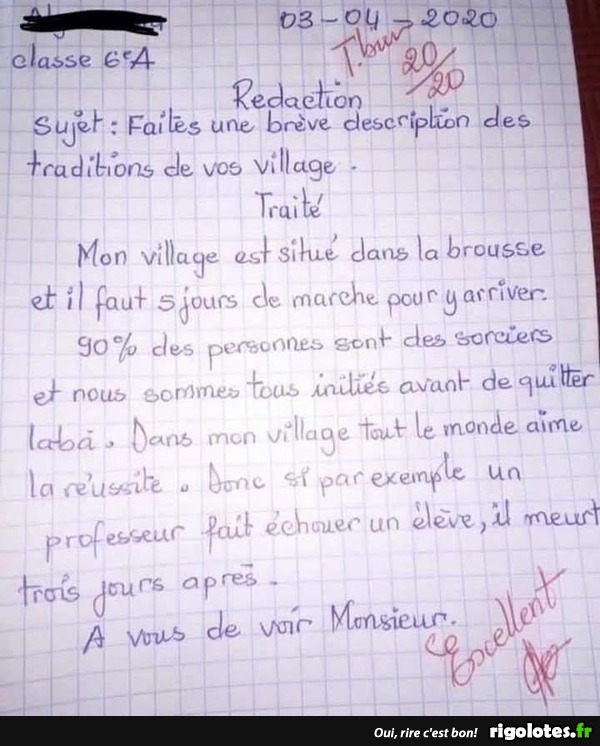 03-04-2020
classe 6eA
T. bien
20/20
Redaction
Sujet : Faites une brève description des
traditions de vos village.
Traité
Mon village est situé dans la brousse
et il faut 5 jours de marche pour y arriver.
90% des personnes sont des sorciers
et nous sommes tous initiés avant de quitter
laba. Dans mon village tout le monde aime
la réussite. Donc si par exemple un
professeur fait échouer un élève, il meurt
trois jours après.
A vous de voir Monsieur.
Excellent
Oui, rire c'est bon! rigolotes.fr